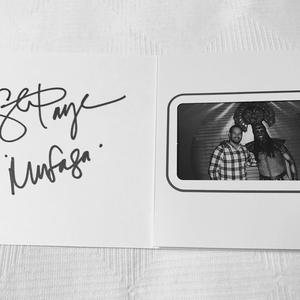 Payne
"Mufasa"